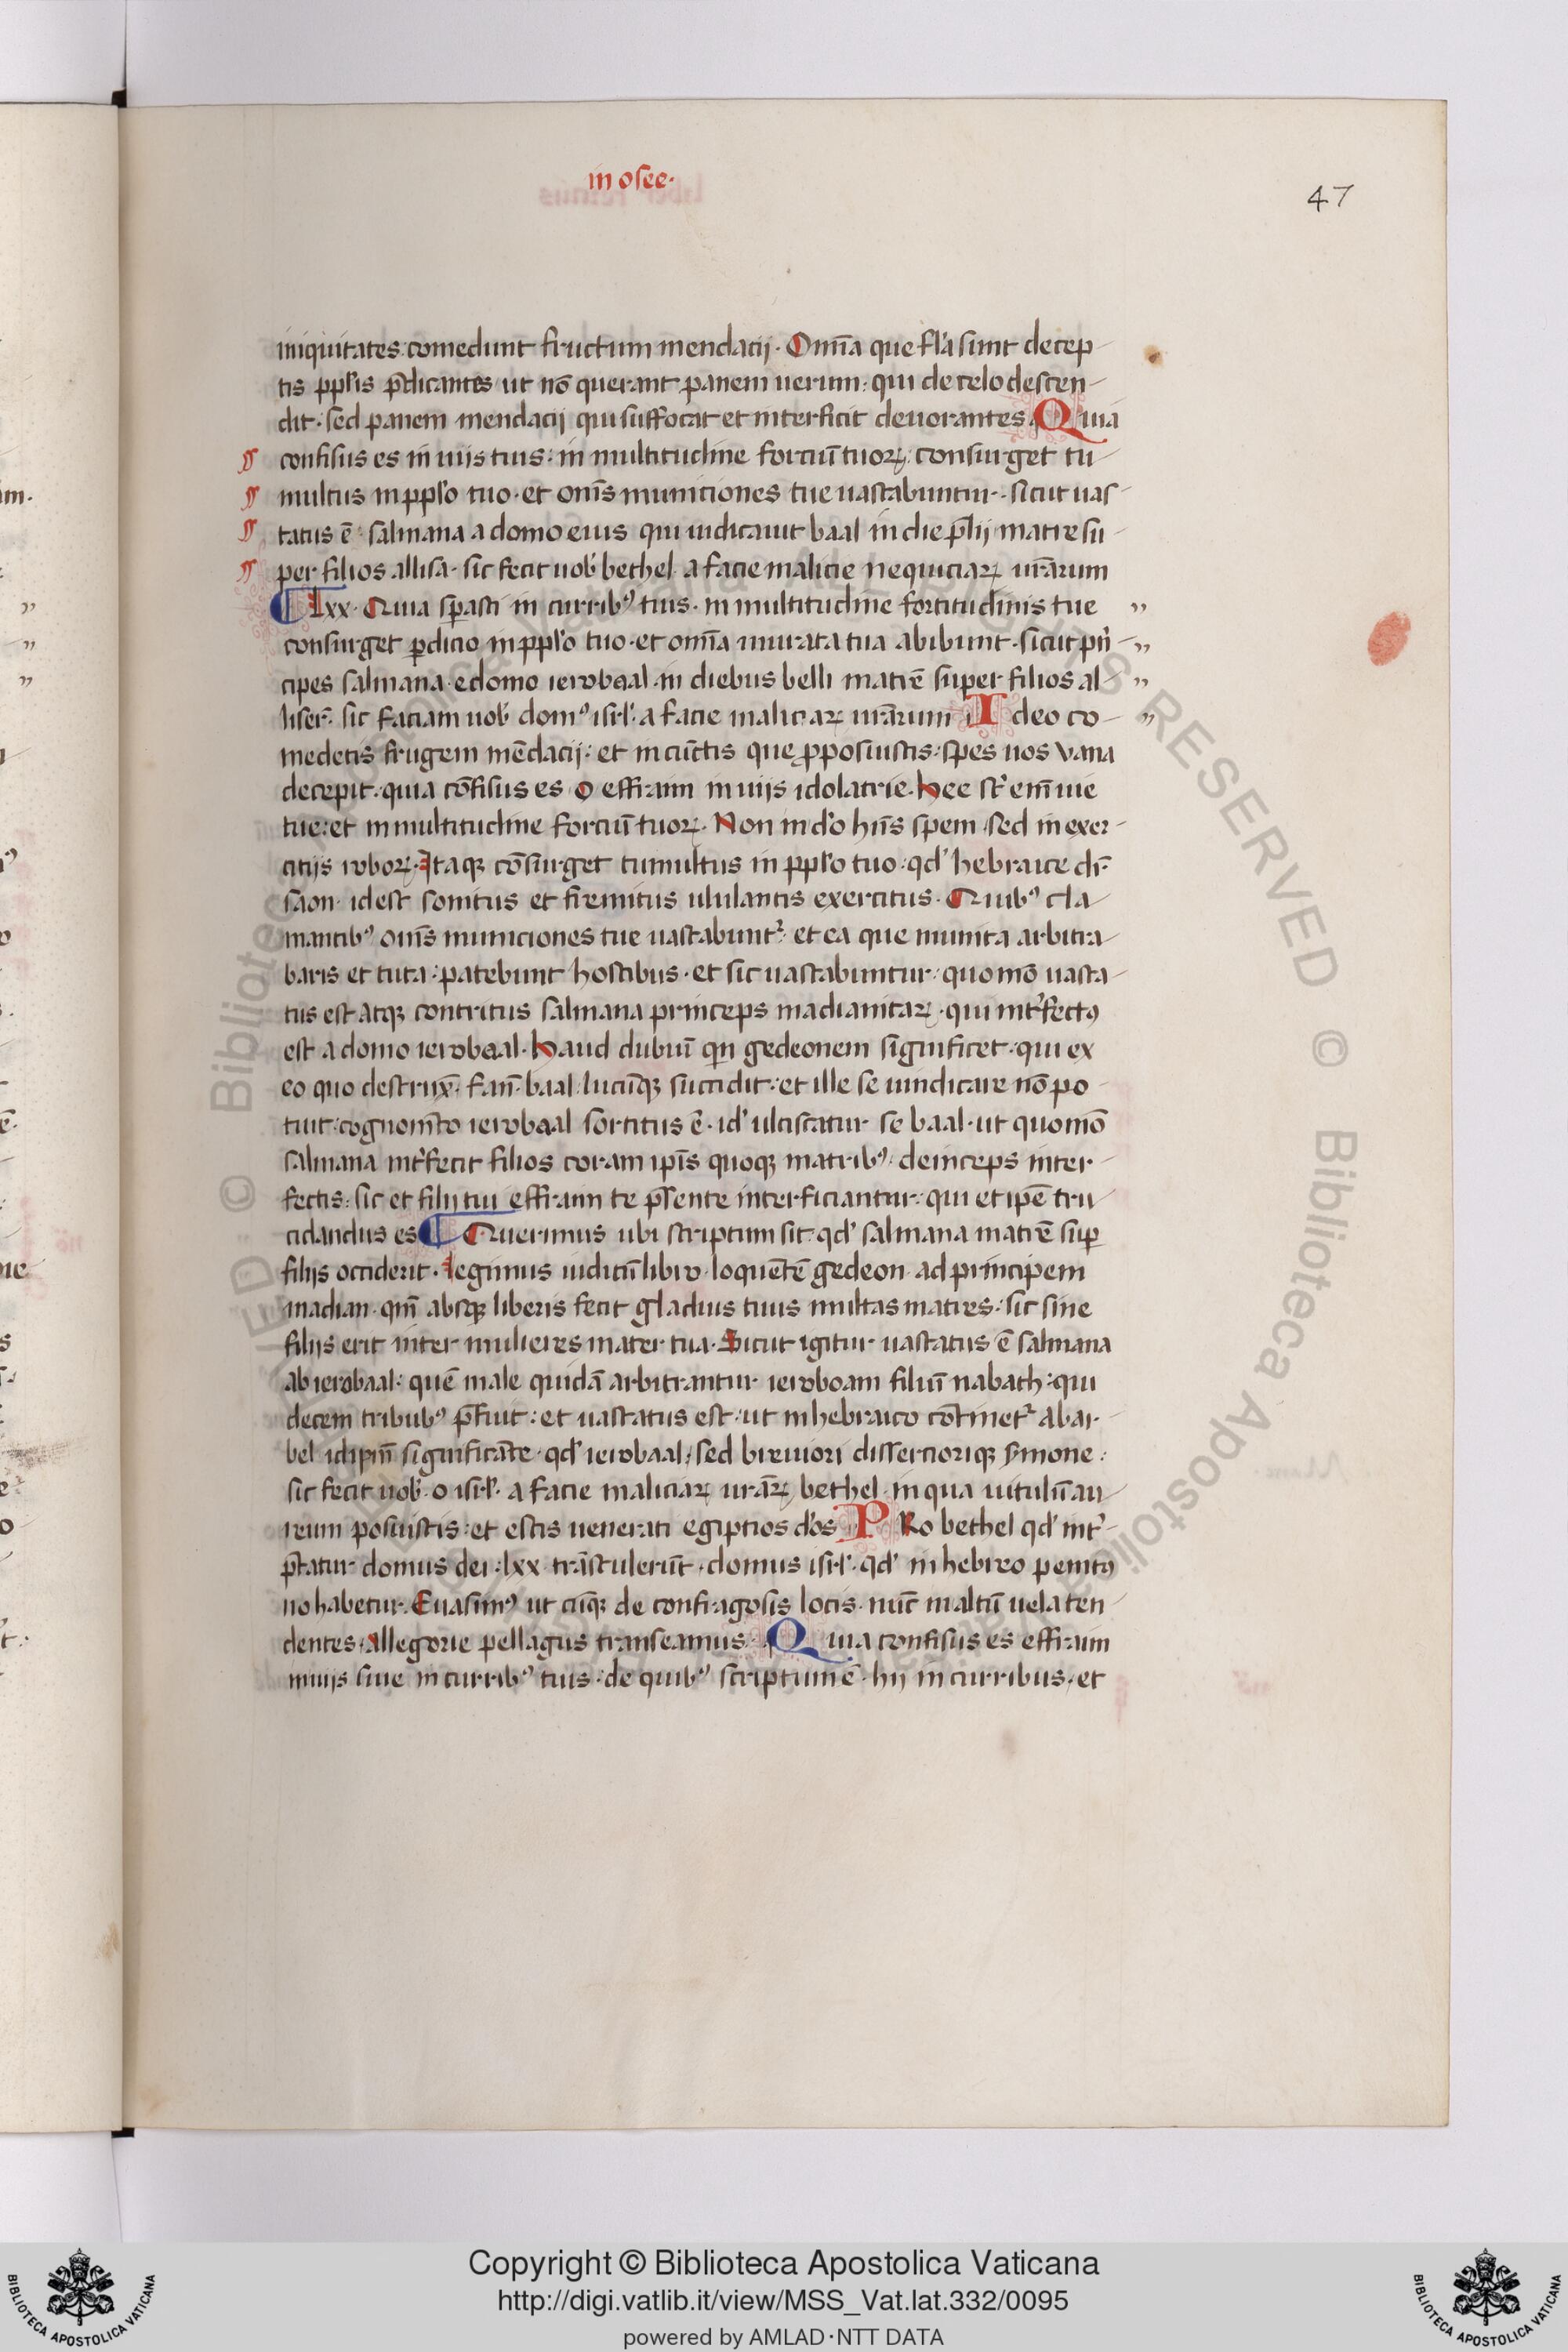 in osee·
47
iniquitates: comedunt fructum mendacij · Om̄ia que fl'a sunt decep-
tis ppl'is p̄dicantes ut nō querant panem uerum: qui de celo descen-
dit · sed panem mendacij qui suffocat et interficit deuorantes. Quia
confisus es in uijs tuis: in multitudine fortiū tuoꝝ: consurget tu
multus in ppl'o tuo · et om̄s municiones tue uastabuntur · sicut uas-
tatus ē · salmana a domo eius qui iudicauit baal in die p̄lij matre su-
per filios allisa · sic fecit uob' bethel a facie malicie nequiciaꝝ ur̄arum
lxx · Quia sꝑasti in curribꝰ tuis · in multitudine fortitudinis tue
consurget ꝑdicio in ppl'o tuo · et om̄ia murata tua abibunt · sicut pn̄-
cipes salmana e domo ierobaal in diebus belli matrē super filios al-
liser̄ · sic faciam uob' domꝰ isrl' a facie maliciaꝝ ur̄arum Ideo co-
medetis frugem mēdacij: et in cūctis que ꝓposuistis: spes uos vana
decepit: quia cōfisus es o effraim in uijs idolatrie. Hee st' em̄ uie
tue: et in multitudine fortiū tuoꝝ. Non in d'o hn̄s spem sed in exer-
citijs roboꝝ. Itaqꝫ cōsurget tumultus in ppl'o tuo: qd' hebraice dr̄
saon · idest sonitus et fremitus ululantis exercitus · Quibꝰ cla-
mantibꝰ om̄s municiones tue uastabunt᷑ · et ea que munita arbitra-
baris et tuta: patebunt hostibus · et sic uastabuntur: quomō uasta-
tus est atqꝫ contritus salmana princeps madianitaꝝ · qui int'fectꝰ
est a domo ierobaal. Haud dubiū qn̄ gedeonem significet: qui ex
eo quo destrux̄ · fan̄ · baal lucūqꝫ succidit: et ille se uindicare nō po-
tuit: cognom̄to ierobaal sortitus ē · id' ulciscatur se baal · ut quomō
salmana int'fecit filios coram ip̄is quoqꝫ matribꝰ: deinceps inter-
fectis: sic et filij tui effraim te p̄sente interficiantur: qui et ip̄e tru-
cidandus es Querimus ubi scriptum sit: qd' salmana matrē suꝑ
filijs occiderit · legimus iudicū libro loquētē gedeon ad principem
madian · qm̄ absqꝫ liberis fecit gladius tuus multas matres: sic sine
filijs erit inter mulieres mater tua. Sicut igitur uastatus ē salmana
ab ierobaal: quē male quidā arbitrantur ieroboam filiū nabath: qui
decem tribubꝰ p̄fuit: et uastatus est: ut in hebraico cōtinet᷑ abar-
bel idip̄m significāte · qd' ierobaal: sed breuiori dissertiorīqꝫ s̄mone:
sic fecit uob' · o isrl' · a facie maliciaꝝ ur̄aꝝ bethel in qua uitulū au-
reum posuistis: et estis uenerati egiptios d'os PRo bethel qd' int'-
p̄tatur domus dei: lxx · trāstulerūt · domus isrl' · qd' in hebreo penitꝰ
no habetur. Euasimꝰ ut cūqꝫ de confragosis locis · nūc in altū uela ten-
dentes · allegorie pellagus transeamus. Quia confisus es effraim
in uijs siue in curribꝰ tuis: de quibꝰ scriptum ē · hij in curribus · et
Copyright © Biblioteca Apostolica Vaticana
http://digi.vatlib.it/view/MSS_Vat.lat.332/0095
powered by AMLAD·NTT DATA